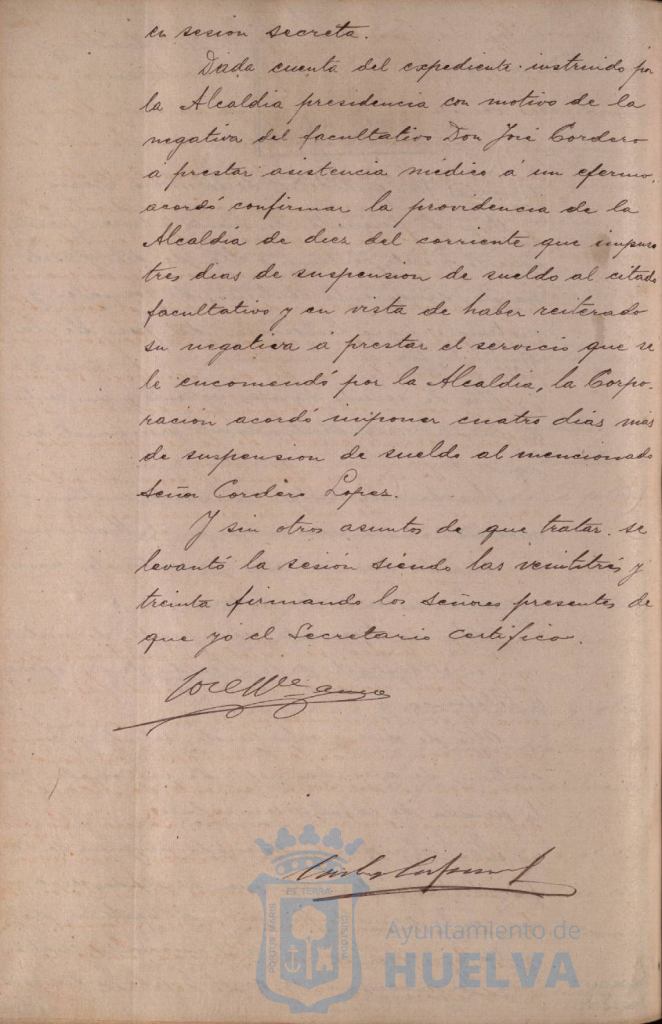 en sesion secreta.
Dada cuenta del expediente instruido por
la Alcaldia presidencia con motivo de la
negativa del facultativo Don José Cordero
á prestar asistencia médica á un efermo.
acordó confirmar la providencia de la
Alcaldía de diez del corriente que impuso
tres dias de suspension de sueldo al citado
facultativo y en vista de haber reiterado
su negativa á prestar el servicio que se
le encomendó por la Alcaldia, la Corpo-
ración acordó imponer cuatro dias mas
de suspension de sueldo al mencionado
Señor Cordero Lopez.
Y sin otros asuntos de que tratar se
levantó la sesión siendo las veintitres y
treinta firmando los señores presentes de
que yo el Secretario certifico.
PORTUS MARIS
ET TERRA
CUSTODIA
Ayuntamiento de
HUELVA